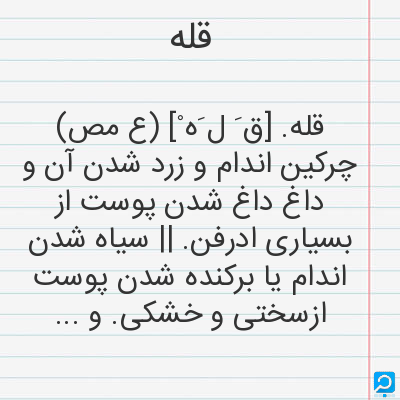 قله
قله. [ق َ ل َه ْ] (ع مص)
چرکین اندام و زرد شدن آن و
داغ داغ شدن پوست از
بسیاری ادرفن. || سیاه شدن
اندام یا برکنده شدن پوست
ازسختی و خشکی. و ...